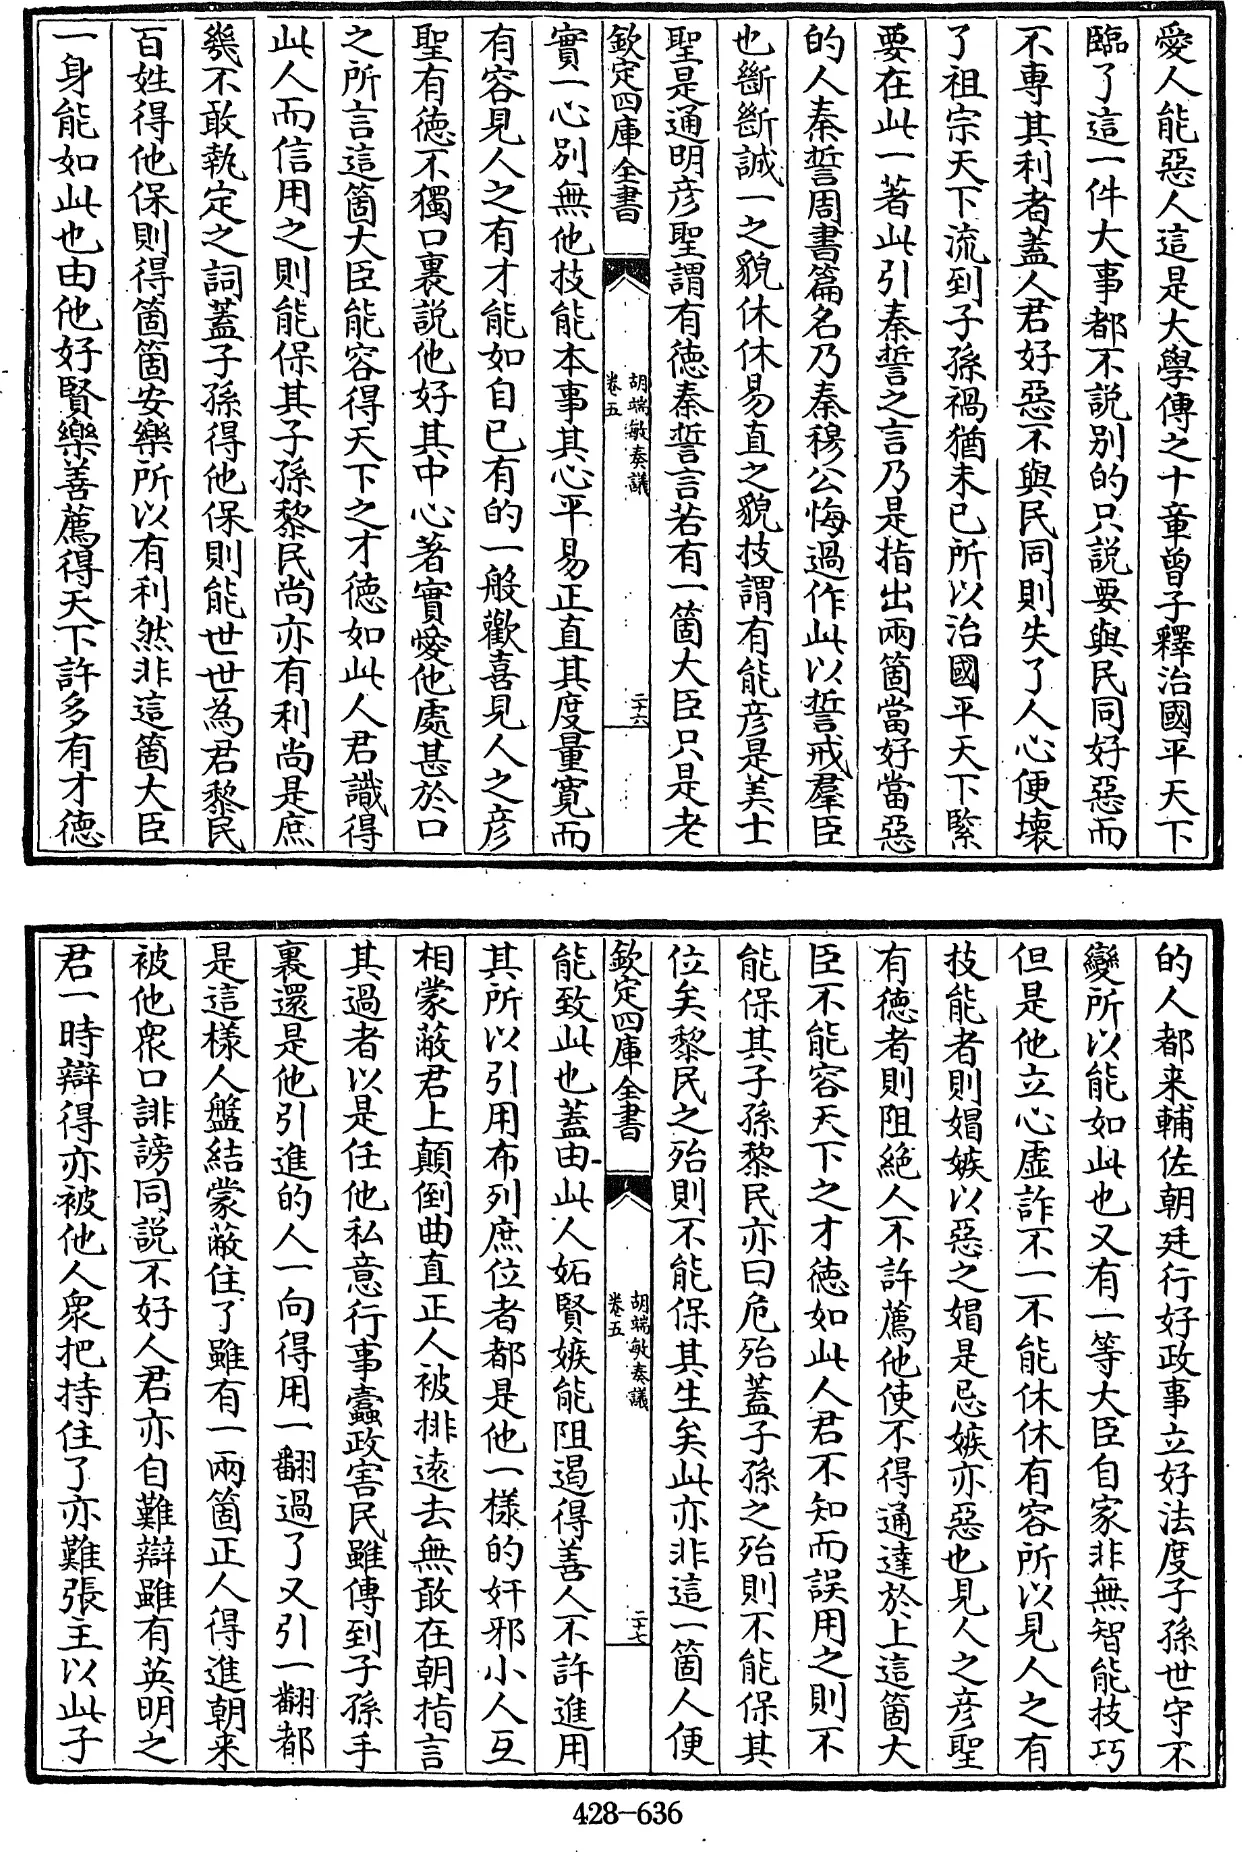 愛人能惡人這是大學傳之十章曾子釋治國平天下
臨了這一件大事都不說別的只說要與民同好惡而
不專其利者蓋人君好惡不與民同則失了人心便壞
了祖宗天下流到子孫禍猶未已所以治國平天下緊
要在此一著此引秦誓之言乃是指出兩箇當好當惡
的人秦誓周書篇名乃秦穆公悔過作此以誓戒羣臣
也斷斷誠一之貌休休易直之貌技謂有能彥是美士
聖是通明彥聖謂有德秦誓言若有一箇大臣只是老
欽定四庫全書
胡端敏奏議
卷五
二十六
實一心別無他技能本事其心平易正直其度量寬而
有容見人之有才能如自已有的一般歡喜見人之彥
聖有德不獨口裏說他好其中心著實愛他處甚於口
之所言這箇大臣能容得天下之才德如此人君識得
此人而信用之則能保其子孫黎民尚亦有利尚是庶
幾不敢執定之詞蓋子孫得他保則能世世為君黎民
百姓得他保則得箇箇安樂所以有利然非這箇大臣
一身能如此也由他好賢樂善薦得天下許多有才德
的人都来輔佐朝廷行好政事立好法度子孫世守不
變所以能如此也又有一等大臣自家非無智能技巧
但是他立心虛詐不一不能休休有容所以見人之有
技能者則媢嫉以惡之媢是忌嫉亦惡也見人之彥聖
有德者則阻絕人不許薦他使不得通達於上這箇大
臣不能容天下之才德如此人君不知而誤用之則不
能保其子孫黎民亦曰危殆蓋子孫之殆則不能保其
位矣黎民之殆則不能保其生矣此亦非這一箇人便
欽定四庫全書
胡端敏奏議
卷五
二十七
能致此也蓋由此人妬賢嫉能阻遏得善人不許進用
其所以引用布列庶位者都是他一様的奸邪小人互
相蒙蔽君上顛倒曲直正人被排逺去無敢在朝指言
其過者以是任他私意行事蠹政害民雖傳到子孫手
裏還是他引進的人一向得用一翻過了又引一翻都
是這様人盤結蒙蔽住了雖有一兩箇正人得進朝来
被他衆口誹謗同說不好人君亦自難辯雖有英明之
君一時辯得亦被他人衆把持住了亦難張主以此子
428-636